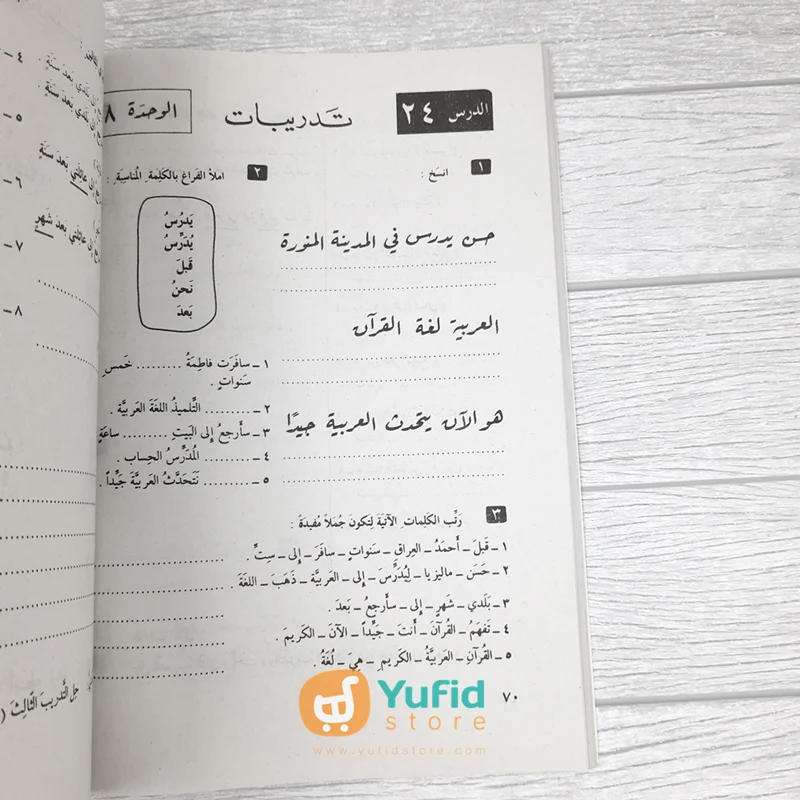 الدرس ٢٤
تَدريبات
الوحدَة ٨
١ انسَخ :
حسن يدرس في المدينة المنورة
العربية لغة القرآن
هو الآن يتحدث العربية جيدًا
٢ املأ الفراغ بالكلِمةِ المُناسِبَةِ :
يَدرُسُ
يُدَرِّسُ
قَبلَ
نَحنُ
بَعدَ
١ ـ سافَرَت فاطِمَةُ ......... خَمسِ
سَنَواتٍ .
٢ ـ ......... التِّلميذُ اللغَةَ العَرَبِيَّةَ .
٣ ـ سَأَرجِعُ إلى البَيتِ ......... ساعَةٍ
٤ ـ ......... المُدَرِّسُ الحِساب .
٥ ـ ......... نَتَحَدَّثُ العَرَبِيَّةَ جَيِّداً .
٣ رَتِّب الكَلِمات الآتيَةَ لِتكونَ جُمَلاً مُفيدَةً :
١ ـ قَبلَ ـ أَحمَدُ ـ العِراقِ ـ سَنَواتٍ ـ سافَرَ ـ إلى ـ سِتِّ .
٢ ـ حَسَن ـ ماليزيا ـ لِيُدَرِّسَ ـ إلى ـ العَرَبِيَّة ـ ذَهَبَ ـ اللغَة .
٣ ـ بَلَدي ـ شَهرٍ ـ إلى ـ سأَرجِعُ ـ بَعدَ .
٤ ـ تَفهَمُ ـ القُرآنَ ـ أَنتَ ـ جَيِّداً ـ الآنَ ـ الكَريمَ .
٥ ـ القُرآنِ ـ العَرَبِيَّةُ ـ الكَريمِ ـ هِيَ ـ لُغَةُ .
٧٠
Yufid
store
www.yufidstore.com
٤ ـ
بَعدَ سَنَةٍ
٥ ـ
٦ ـ
إلى عائِلَتي بَعدَ سَنَةٍ
٧ ـ
إلى عائِلَتي بَعدَ شَهرٍ
٨ ـ
حل التَّدريبَ الثّالِثَ (